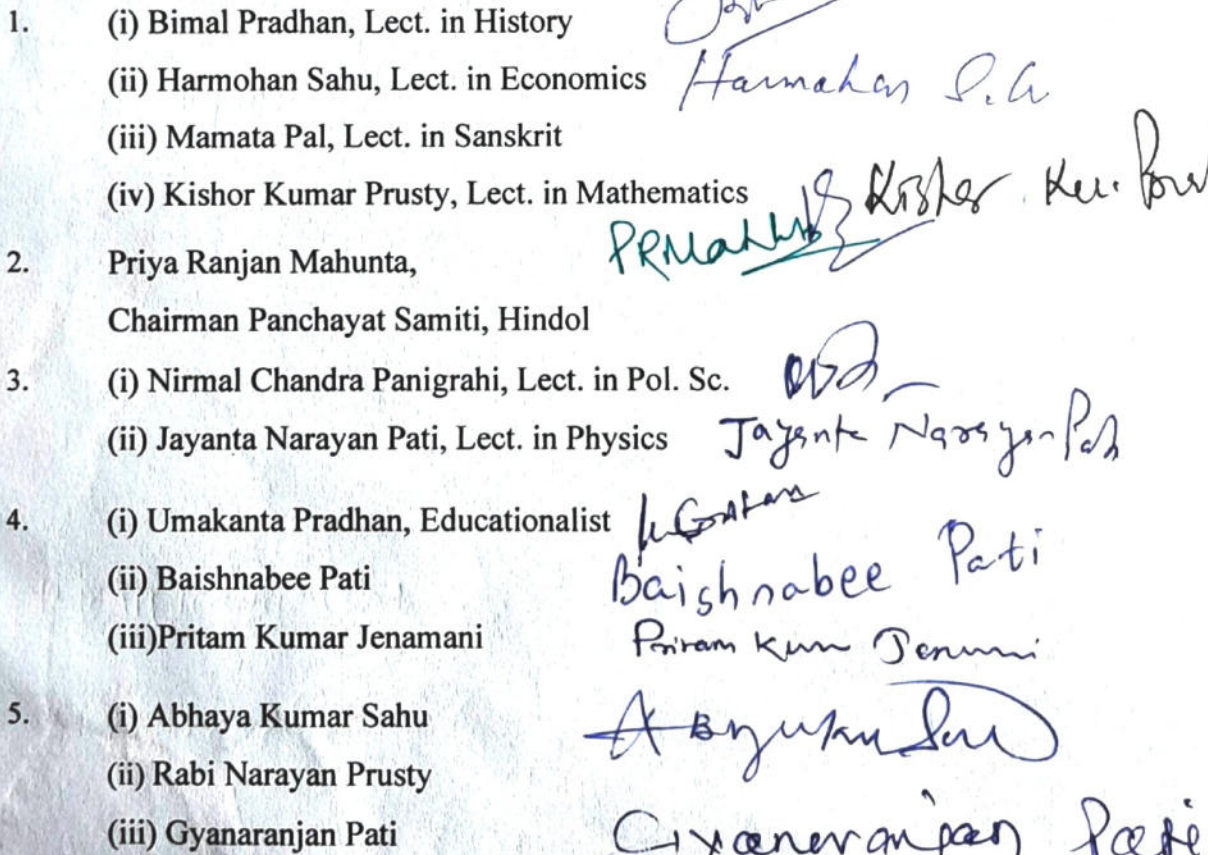 1. (i) Bimal Pradhan, Lect. in History
(ii) Harmohan Sahu, Lect. in Economics Harmohan
(iii) Mamata Pal, Lect. in Sanskrit
(iv) Kishor Kumar Prusty, Lect. in Mathematics Kishor
PRMahunta
2. Priya Ranjan Mahunta,
Chairman Panchayat Samiti, Hindol
3. (i) Nirmal Chandra Panigrahi, Lect. in Pol. Sc.
(ii) Jayanta Narayan Pati, Lect. in Physics Jayanta Narayan Pati
4. (i) Umakanta Pradhan, Educationalist
(ii) Baishnabee Pati Baishnabee Pati
(iii)Pritam Kumar Jenamani
5. (i) Abhaya Kumar Sahu
(ii) Rabi Narayan Prusty
(iii) Gyanaranjan Pati Gyanaranjan Pati